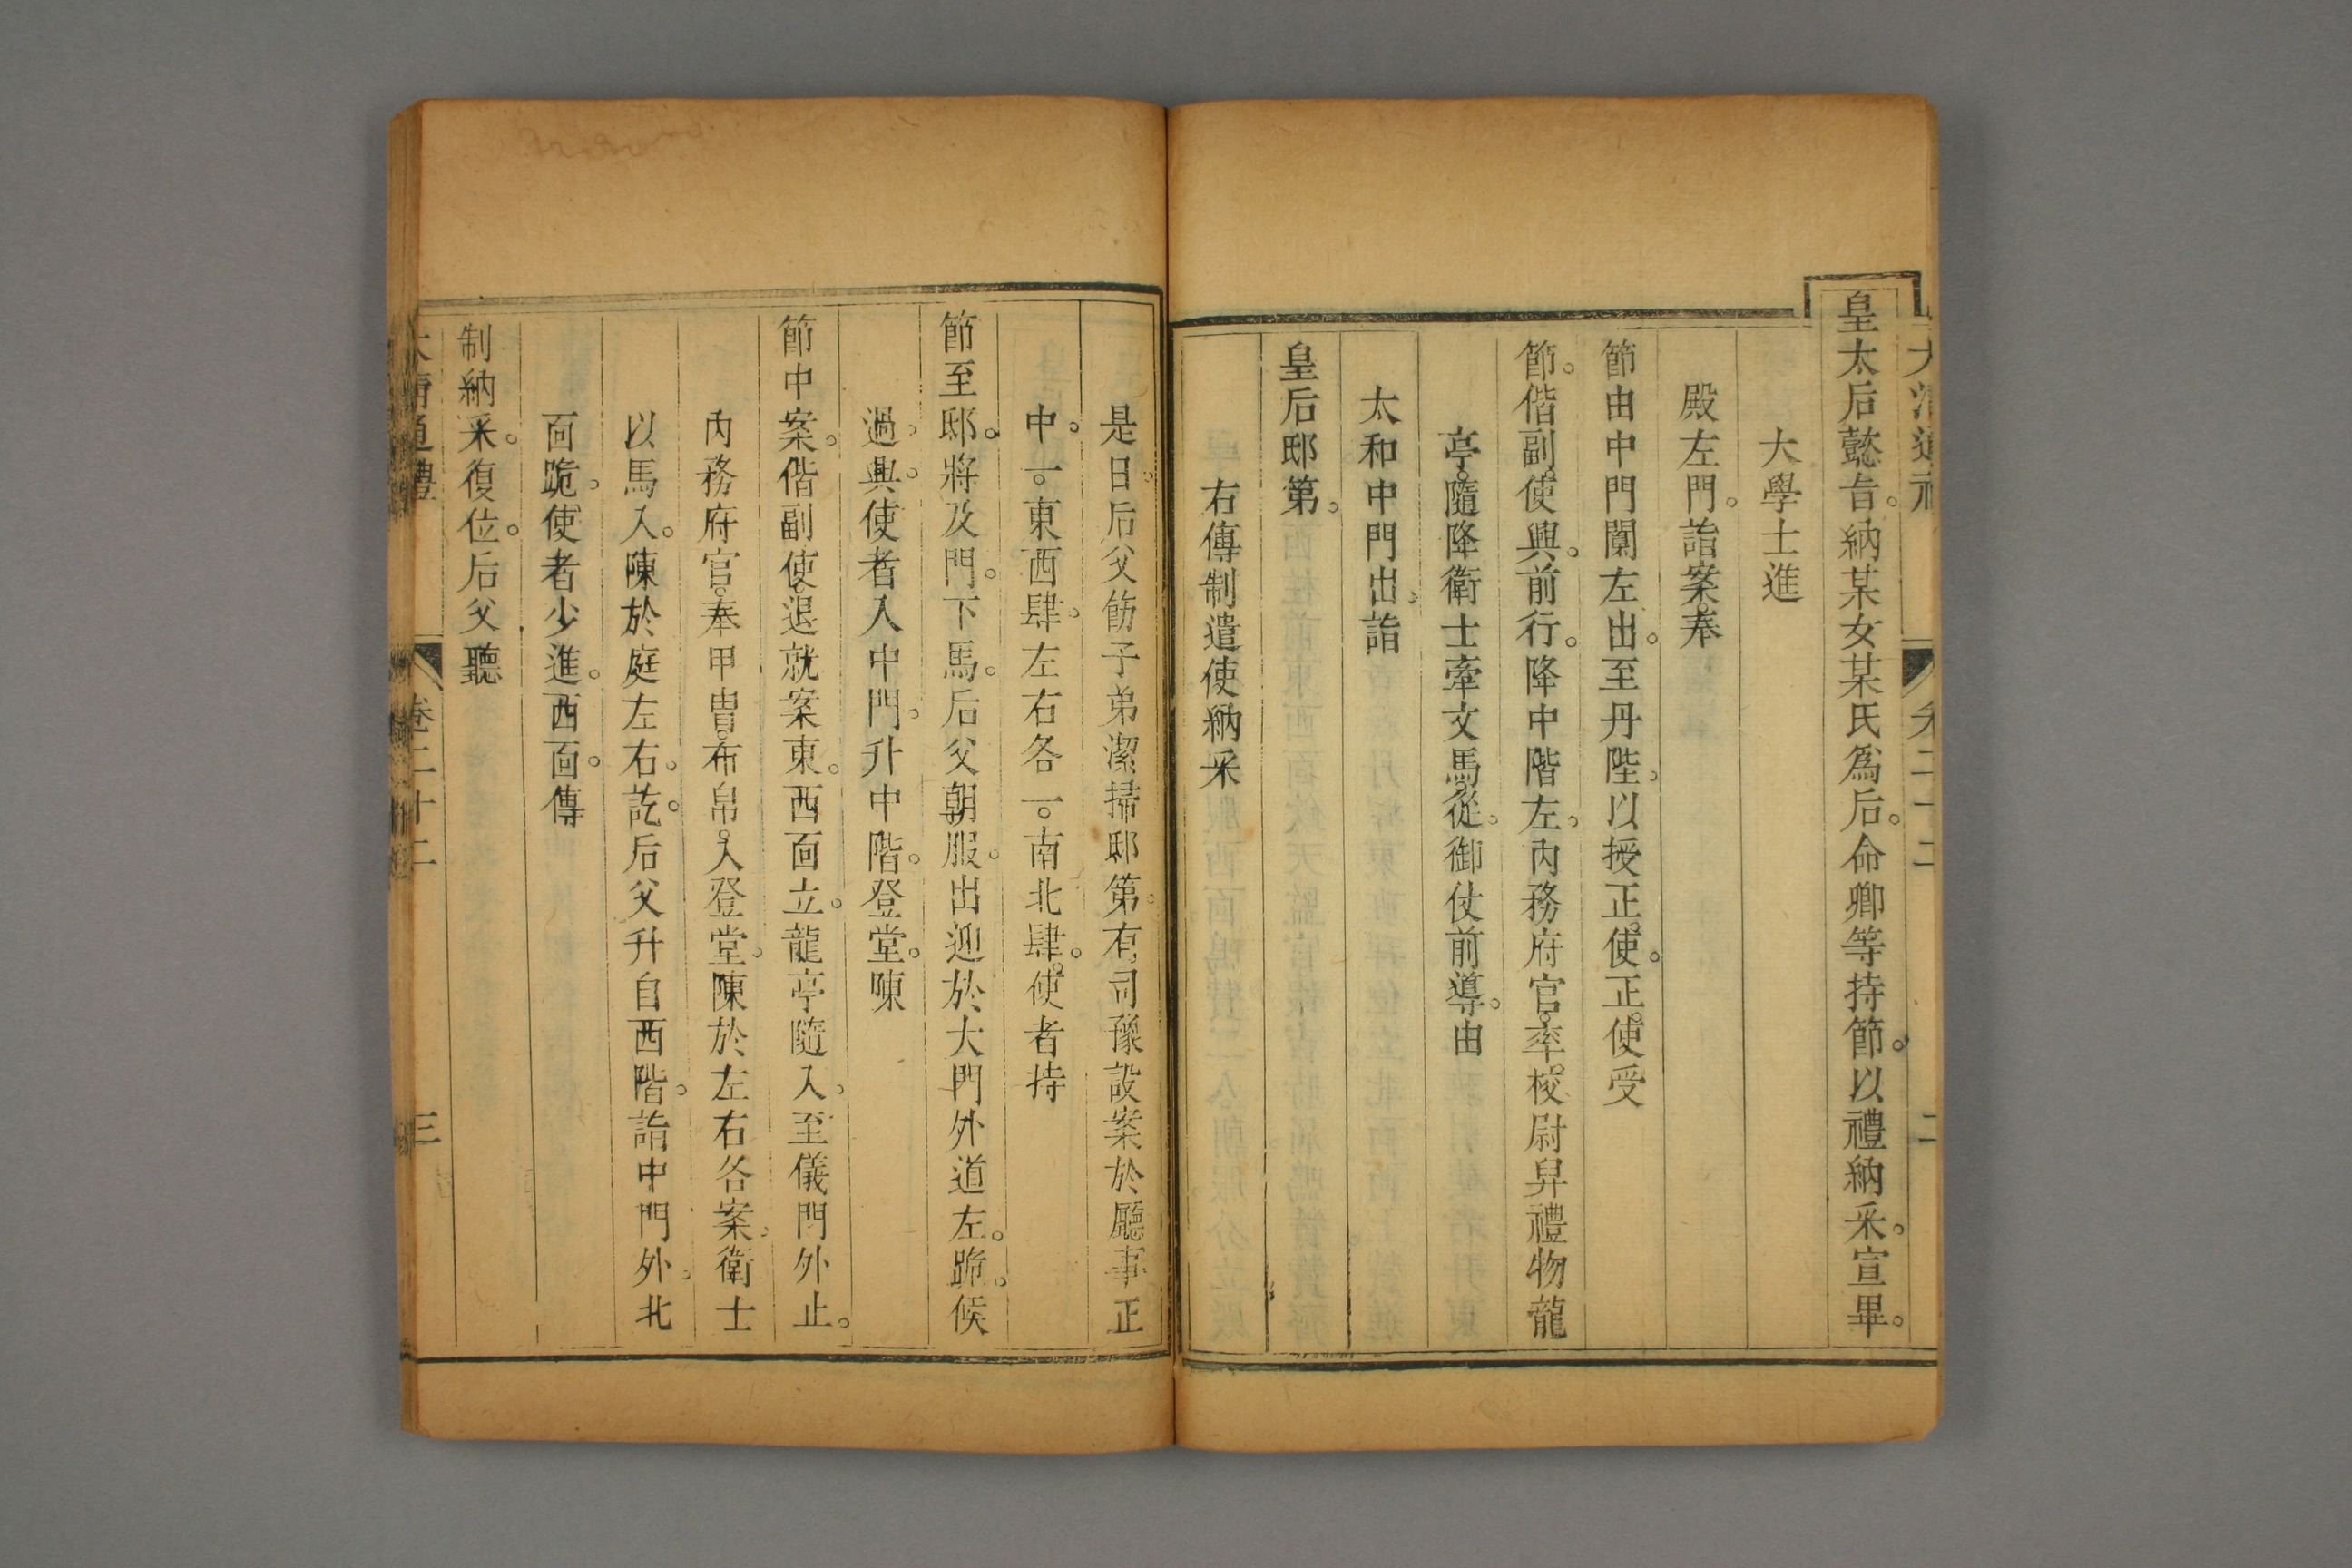 大清通禮 卷二十二 二
皇太后懿旨。納某女某氏爲后。命卿等持節。以禮納采。宣畢。
大學士進
殿左門。詣案。奉
節由中門闑左出。至丹陛。以授正使。正使受
節。偕副使興。前行。降中階左。內務府官率校尉舁禮物龍
亭。隨降。衛士牽文馬從。御仗前導。由
太和中門出。詣
皇后邸第。
右傳制遣使納采
是日。后父飭子弟潔掃邸第。有司豫設案於廳事正
中一。東西肆。左右各一。南北肆。使者持
節至邸。將及門。下馬。后父朝服。出迎於大門外道左。跪。候
過。興。使者入中門。升中階。登堂。陳
節中案。偕副使退就案東。西面立。龍亭隨入。至儀門外止。
內務府官奉甲冑布帛入登堂。陳於左右各案。衛士
以馬入。陳於庭左右。訖。后父升自西階。詣中門外。北
面跪。使者少進。西面。傳
制納采。復位。后父聽
大清通禮 卷二十二 三